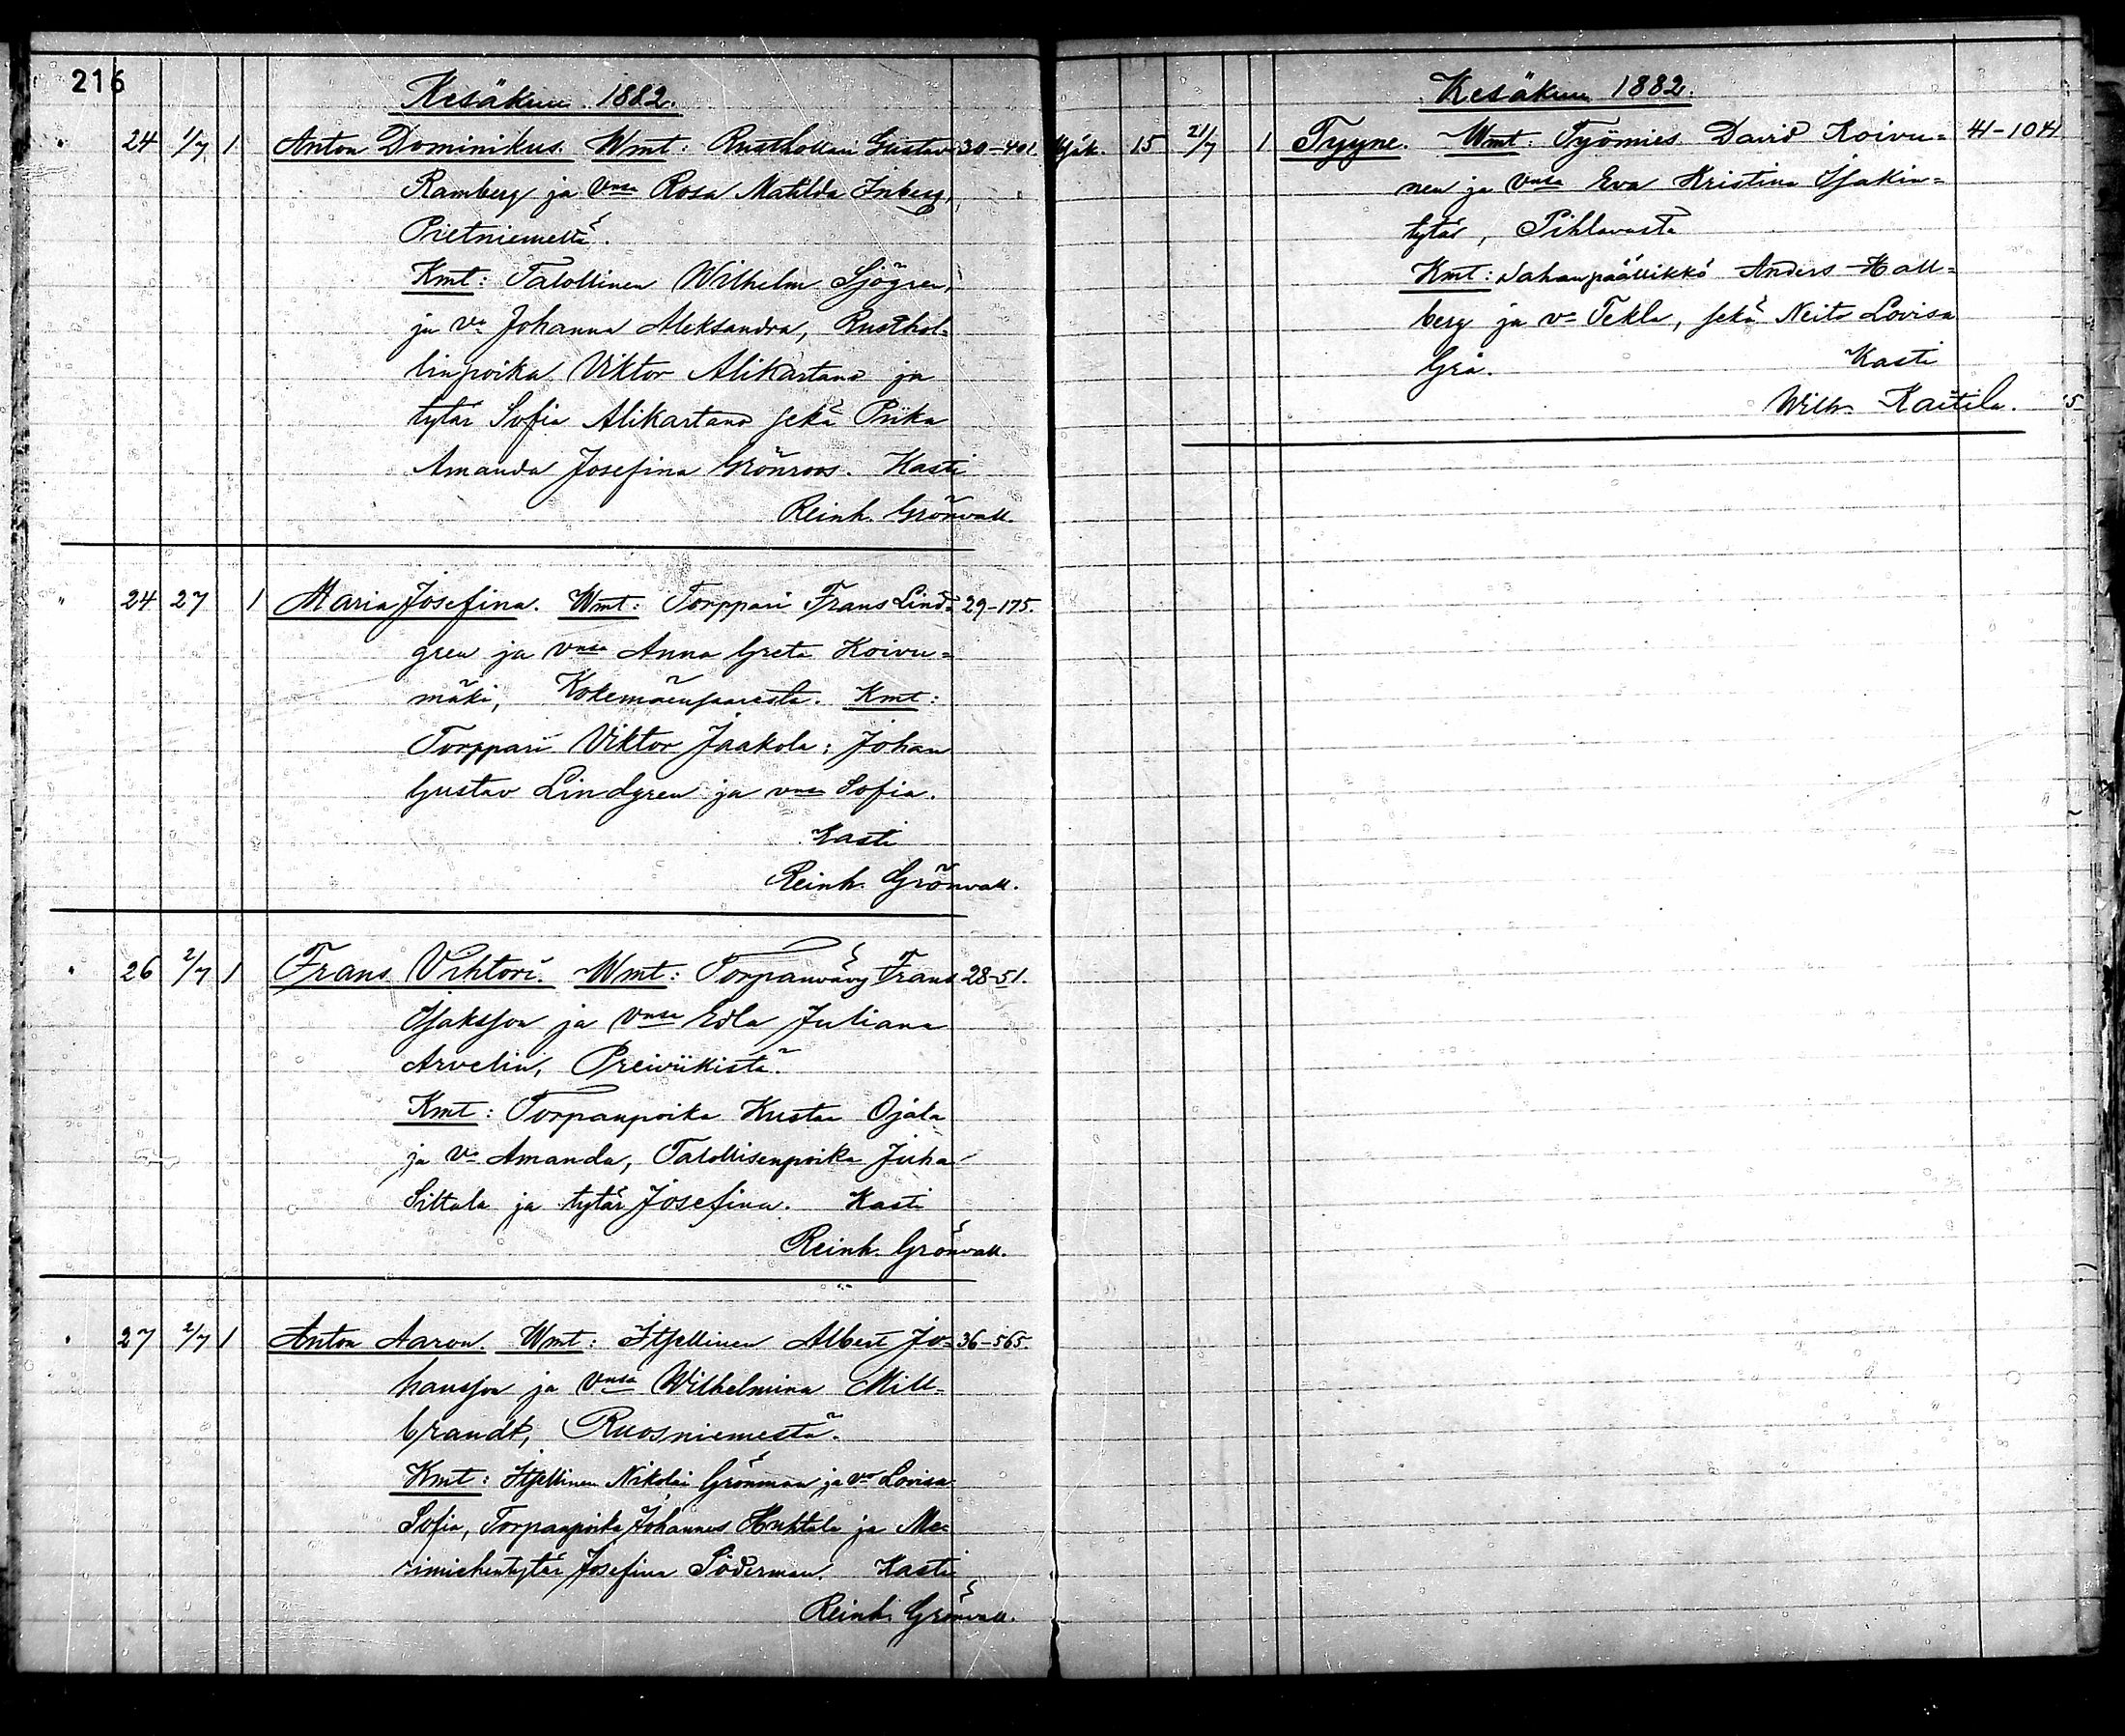 216
Kesäkuu 1882.
" 24 1/7 1 Anton Dominikus. Wmt: Rusthollari Gustav 30-401.
Ramberg ja Vnsa Rosa Matilda Inberg,
Pietniemeltä.
Kmt: Talollinen Wilhelm Sjögren,
ja Va Johanna Aleksandra, Rusthol-
linpoika Viktor Alikartano ja
tytär Sofia Alikartano sekä Piika
Amanda Josefina Grönroos. Kasti
Reinh. Grönvall.
" 24 27 1 Maria Josefina. Wmt: Torppari Frans Lind= 29-175.
gren ja Vnsa Anna Greta Koivu=
mäki, Kokemäensaaresta. Kmt:
Torppari Viktor Jaakola; Johan
Gustav Lindgren ja vnsa Sofia.
Kasti
Reinh. Grönvall.
" 26 2/7 1 Frans Vihtori. Wmt: Torpanvävy Frans 28-51.
Isaksson ja Vnsa Edla Juliana
Arvelin, Preiviikistä.
Kmt: Torpanpoika Kustaa Ojala
ja Va Amanda, Talollisenpoika Juha
Siltala ja tytär Josefina. Kasti
Reinh. Grönvall.
" 27 2/7 1 Anton Aaron. Wmt: Itsellinen Albert Jo= 36-565.
hansson ja Vnsa Wilhelmina Mill-
brandt, Ruosniemestä.
Kmt: Itsellinen Nikolai Grönman ja va Lovisa
Sofia, Torpanpoika Johannes Huhtala ja Me=
rimiehentytär Josefina Söderman. Kasti
Reinh. Grönvall.
Kesäkuu 1882.
15 21/7 1 Tyyne. Wmt: Työmies David Koivu= 41-1041
nen ja Vnsa Eva Kristina Isakin=
tytär, Pihlavasta
Kmt: Sahanpäällikkö Anders Hall=
berg ja va Tekla, sekä Neito Lovisa
Grå. Kasti
Wilh. Kaitila.